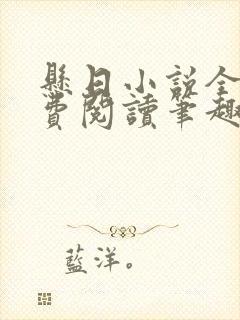 懸日小説全
費閱讀筆趣
藍洋。